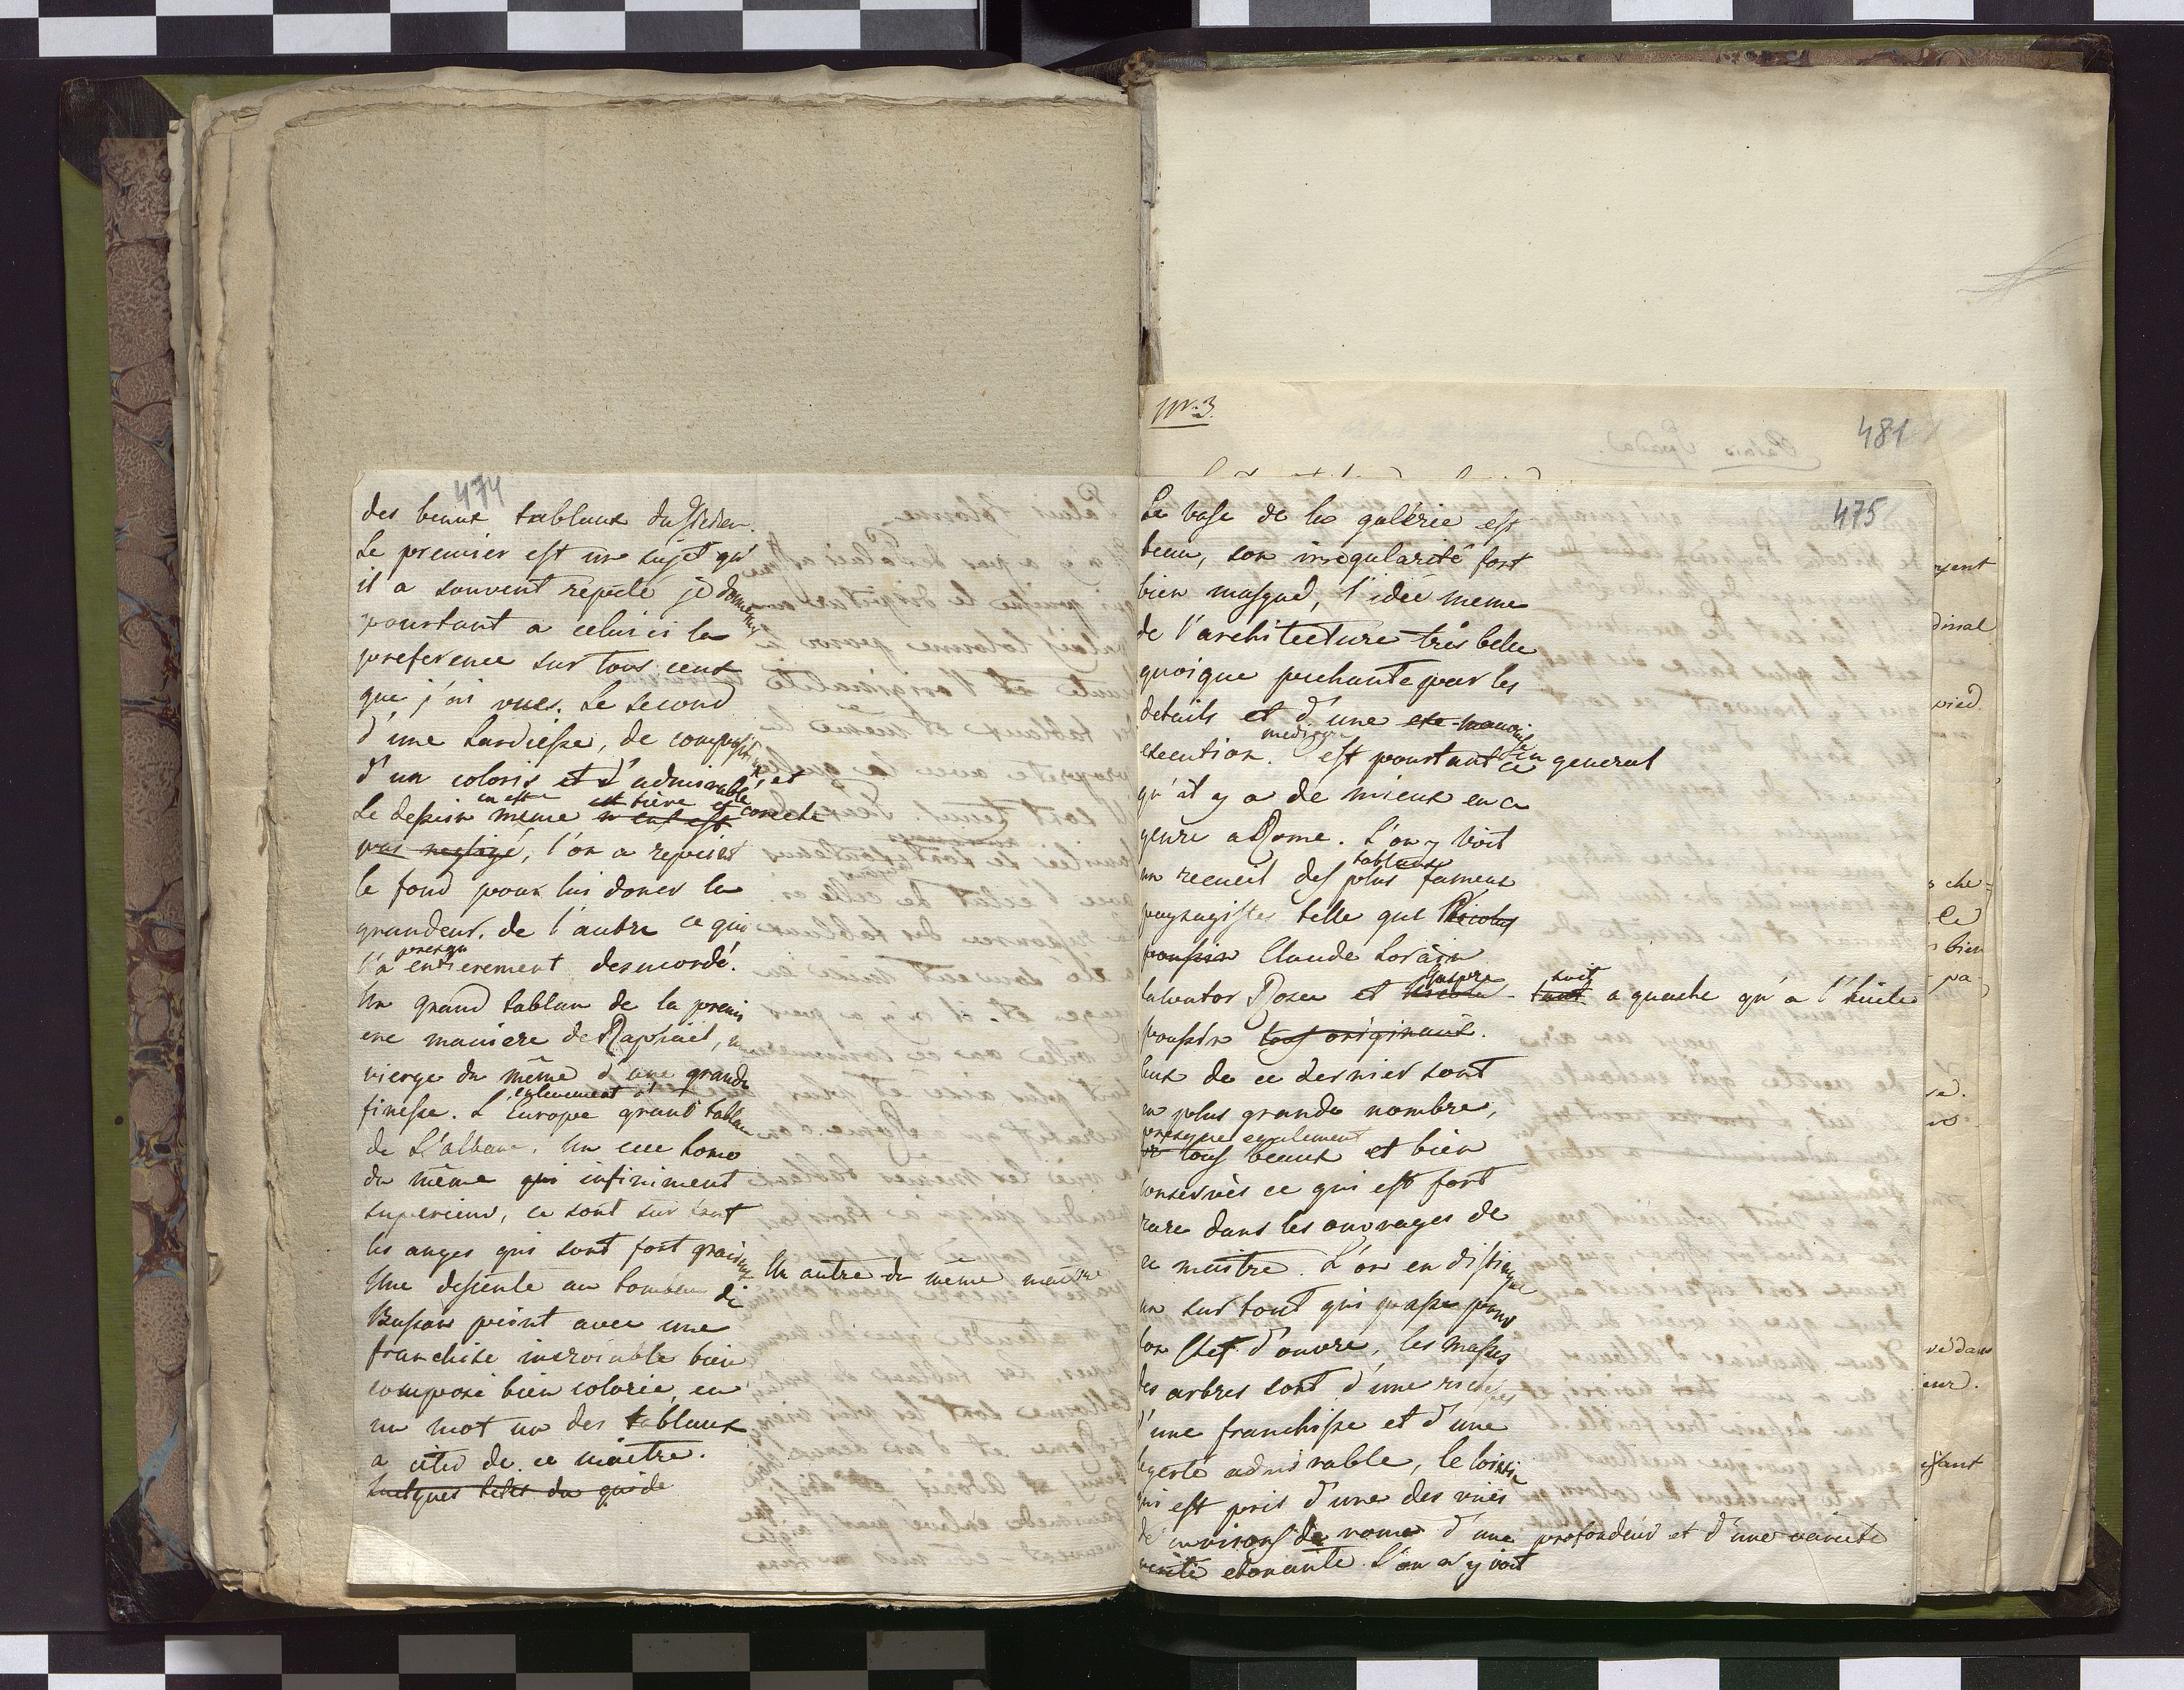 474
des beaux tableaux du Titien.
Le premier est un sujet qu'
il a souvent repeté je donnerais
pourtant a celui ci la
preference sur tous ceux
que j'ai vues. Le second
d'une hardiesse, de composition
d'un coloris et d'admirable, et
en est et fière et correcte
Le dessin même n'en est
pas negligé, l'on a repeint
le fond pour lui doner la
grandeur. de l'autre ce qui
presqu
l'a entierement desacordé.
Un grand tableau de la premi
ere maniere de Raphael, une
vierge du même d'une grande
enlevement d'
finesse. L'Europe grand tableau
de L'albane. Un ecce homo
du même qui infiniment
superieur, ce sont sur tout
les anges qui sont fort gracieux
Un autre du même maitre
Une descente au tombeau de
Bassan peint avec une
franchise incroiable bien
composé bien colorie en
un mot un des tableaux
a citer de ce maitre.
quelques têtes du guide
Nr. 3.
481
475
Le vase de la galérie est
beau, son irregularité fort
bien masqué, l'idée meme
de l'architecture très belle
quoique pechante par les
details et d'une exe mauvaise
mediocre
execution. C'est pourtant ce en general
qu'il y a de mieux en ce
genre a Rome. L'on y voit
tableaux
un recueil des plus fameux
paysagistes telle que Nicolas
poussin Claude Lorain
Gaspre soit
Salvator Rosa et Nicolas tant a guache qu'a l'huile
poussin tous originaux.
ceux de ce dernier sont
en plus grande nombre,
presque egalement
tous beaux et bien
conservés ce qui est fort
rare dans les ouvrages de
ce maitre. L'on en distingue
un sur tout qui passe pour
son chef d'ouvre, les masses
des arbres sont d'une richesse
d'une franchisse et d'une
legerté admirable, le lointin
qui est pris d'une des vues
de environs de rome d'une profondeur et d'une varieté
verité etonante. L'on n'y voit